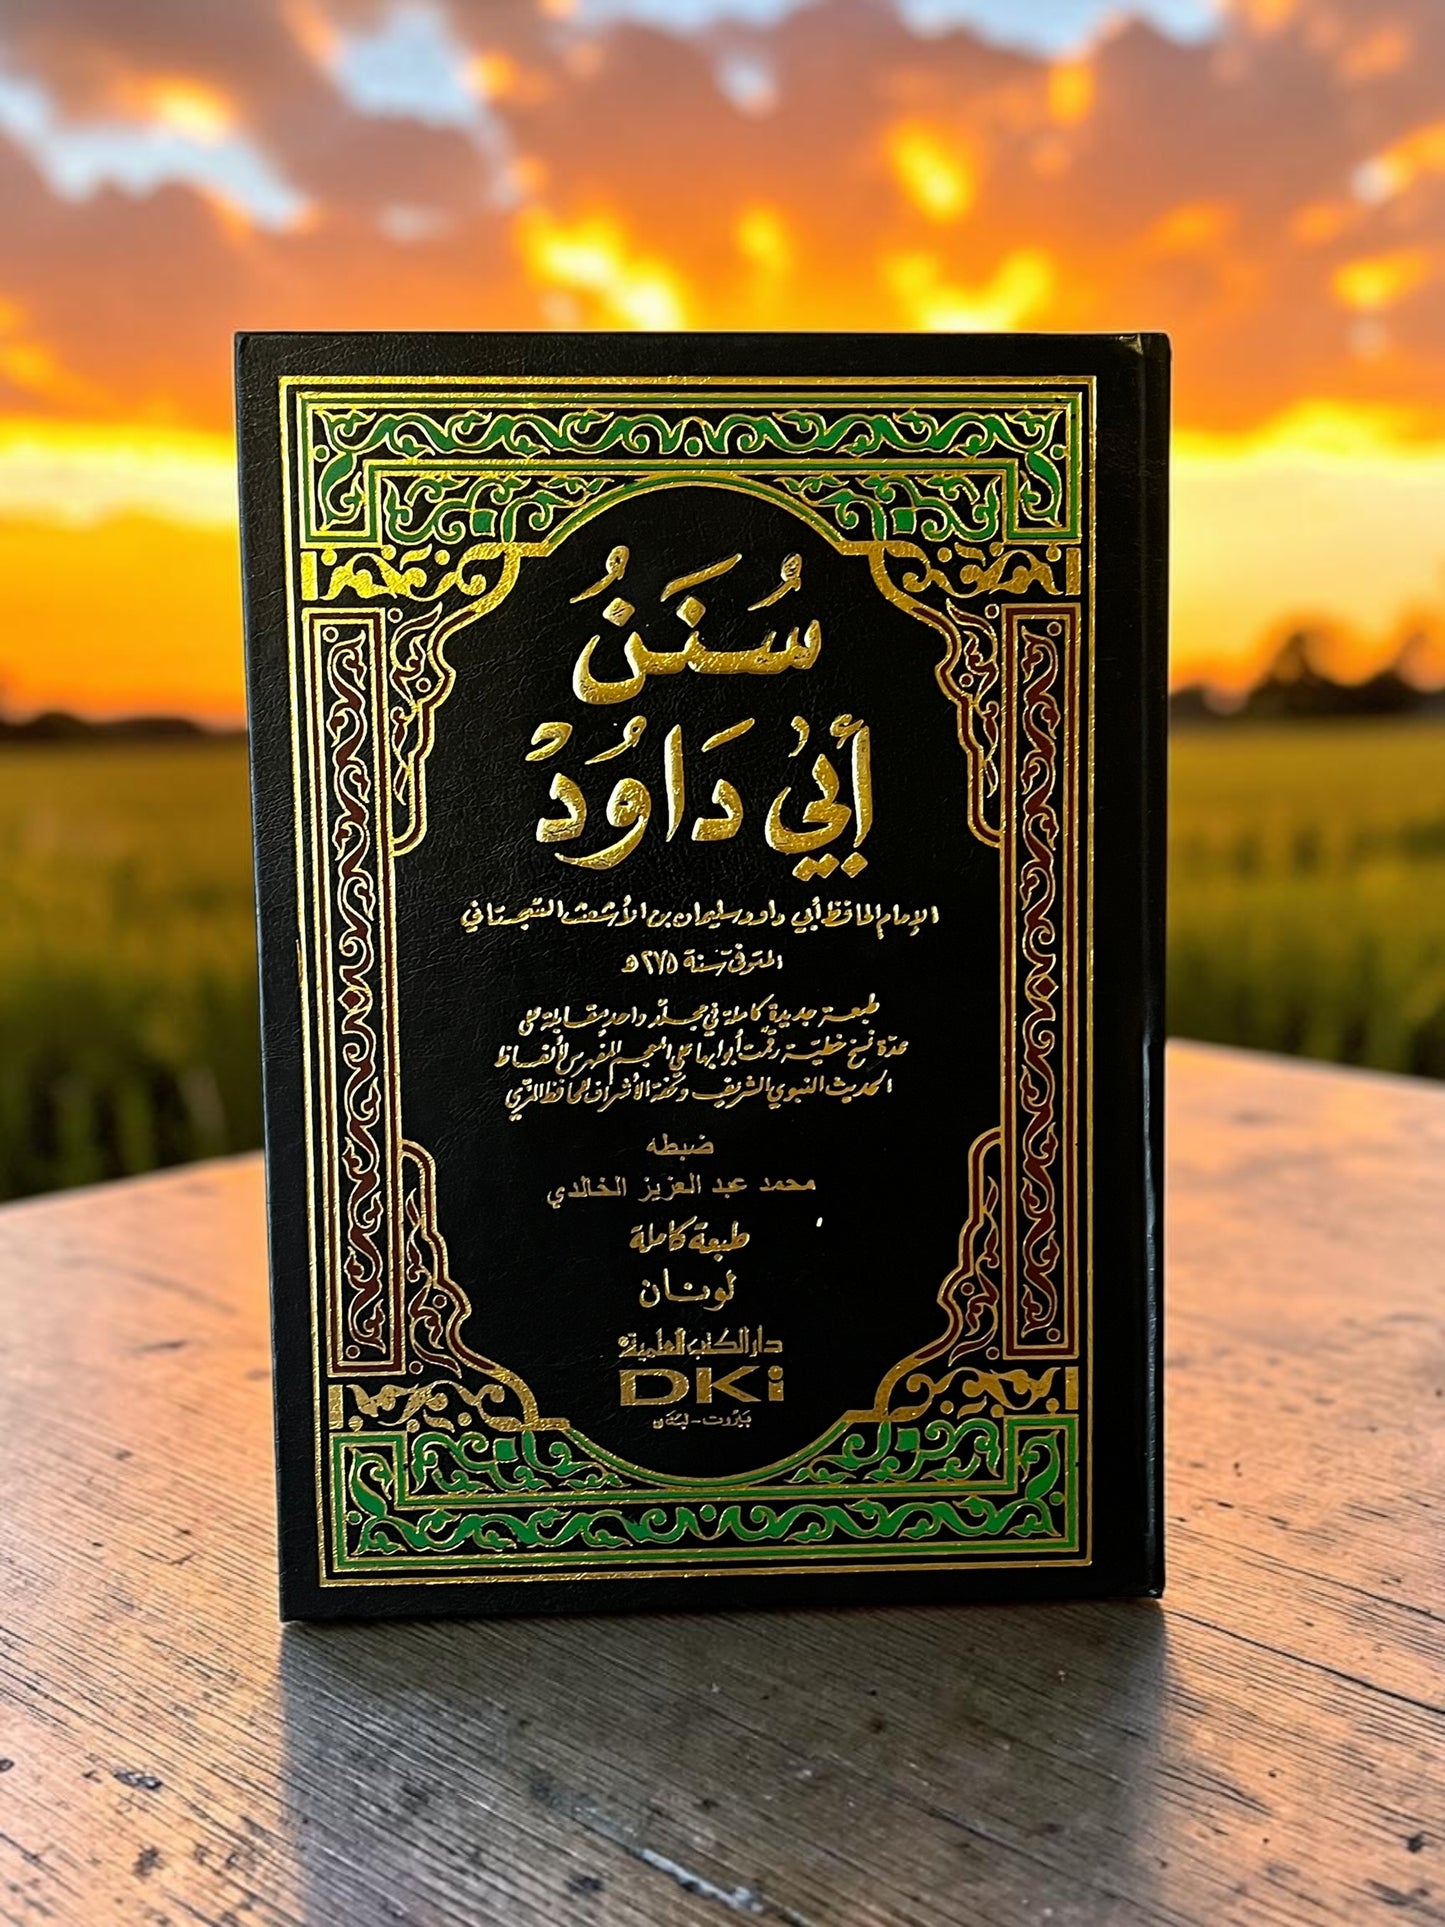 سُنَنُ
أَبِي دَاوُدْ
الإمام الحافظ أبي داود سليمان بن الأشعث السّجستاني
المتوفى سنة ٢٧٥ ھ
طبعة جديدة كاملة في مجلّد واحد مقابلة على
عدّة نسخ خطيّة رقّمت أبوابها على المعجم المفهرس لألفاظ
الحديث النبوي الشريف وتحفة الأشراف للحافظ المزّي
ضبطه
محمد عبد العزيز الخالدي
طبعة كاملة
لونان
دار الكتب العلمية
DKi
بيروت - لبنان